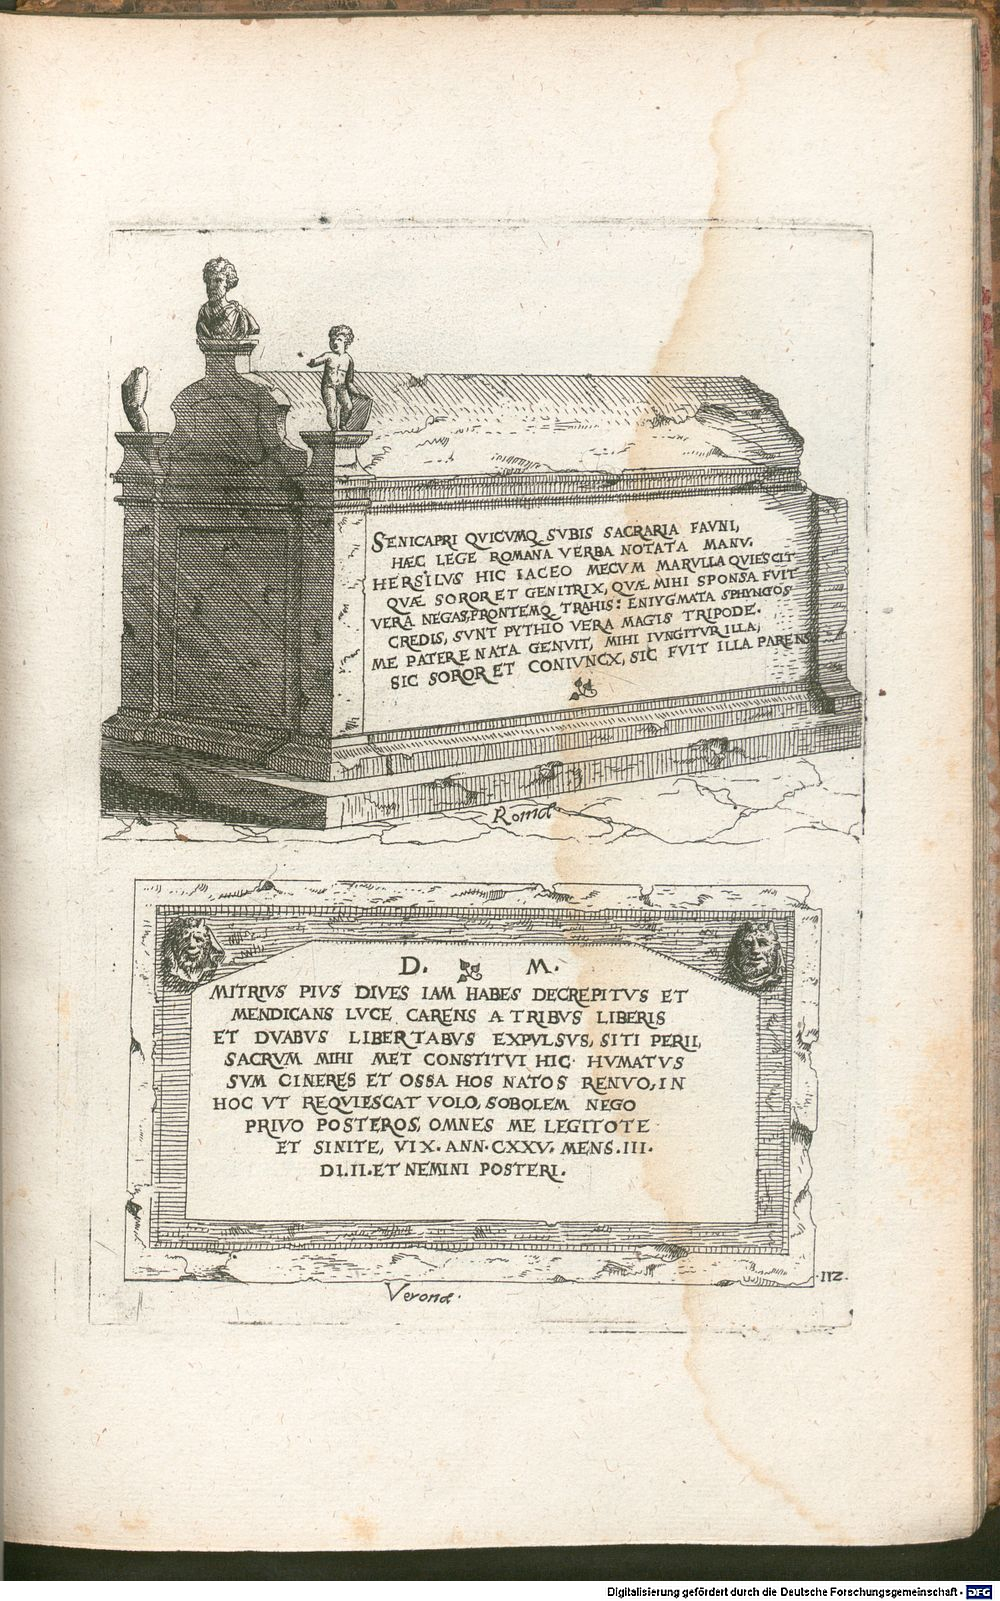 SENICAPRI QVICVMQ SVBIS SACRARIA FAVNI,
HÆC LEGE ROMANA VERBA NOTATA MANV.
HERSILVS HIC IACEO MECVM MARVLLA QVIESCIT
QVÆ SOROR ET GENITRIX, QVÆ MIHI SPONSA FVIT
VERA NEGAS, FRONTEMQ TRAHIS: ENIYGMATA SPHYNGOS
CREDIS, SVNT PYTHIO VERA MAGIS TRIPODE.
ME PATER E NATA GENVIT, MIHI IVNGITVR ILLA,
SIC SOROR ET CONIVNCX, SIC FVIT ILLA PARENS
Romæ
D. M.
MITRIVS PIVS DIVES IAM HABES DECREPITVS ET
MENDICANS LVCE CARENS A TRIBVS LIBERIS
ET DVABVS LIBERTABVS EXPVLSVS, SITI PERII,
SACRVM MIHI MET CONSTITVI HIC HVMATVS
SVM CINERES ET OSSA HOS NATOS RENVO, IN
HOC VT REQVIESCAT VOLO, SOBOLEM NEGO
PRIVO POSTEROS, OMNES ME LEGITOTE
ET SINITE, VIX. ANN. CXXV. MENS. III.
DI. II. ET NEMINI POSTERI.
112.
Veronæ.
Digitalisierung gefördert durch die Deutsche Forschungsgemeinschaft - DFG